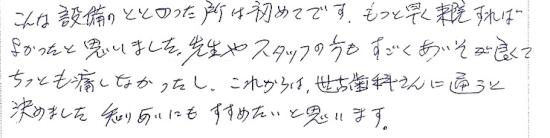 こんな設備のととのった所は初めてです。もっと早く来院すれば
よかったと思いました。先生やスタッフの方もすごくあいそが良くて
ちっとも痛しなかったし、これからは、世古歯科さんに通うと
決めました 知りあいにもすすめたいと思います。